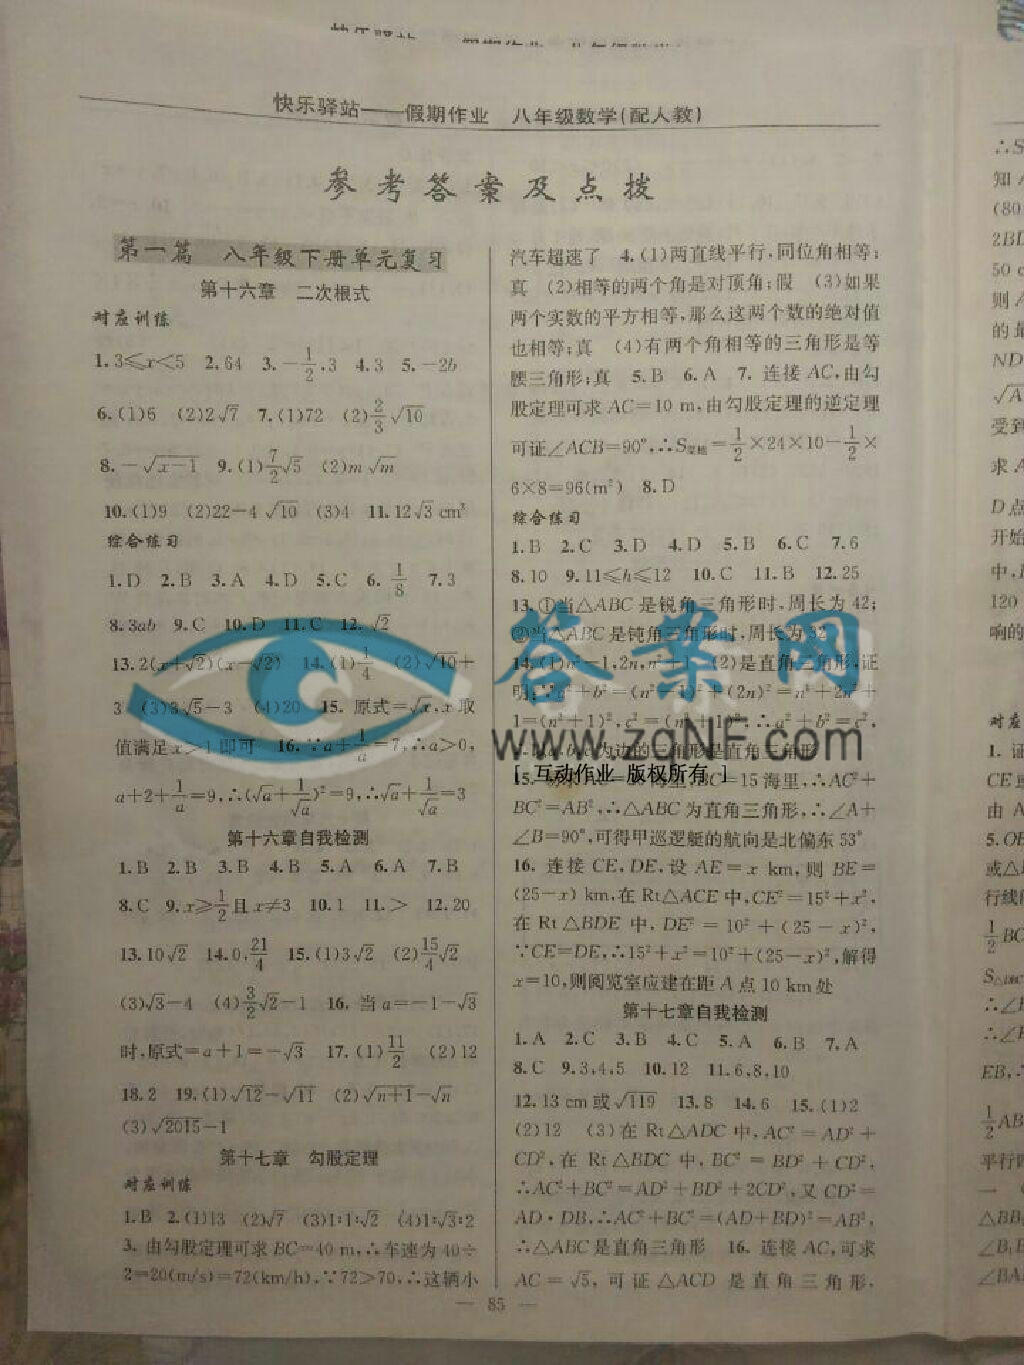 快乐驿站——假期作业 八年级数学(配人教)
参考答案及点拨
第一篇 八年级下册单元复习
第十六章 二次根式
对应训练
1.3≤x<5 2.64 3.-1/2,3 4.3 5.-2b
6.(1)6 (2)2√7 7.(1)72 (2)2/3√10
8.-√(x-1) 9.(1)7/2√5 (2)m√m
10.(1)9 (2)22-4√10 (3)4 11.12√3 cm³
综合练习
1.D 2.B 3.A 4.D 5.C 6.1/8 7.3
8.3ab 9.C 10.D 11.C 12.√2
13.2(x+√2)(x-√2) 14.(1)1/4 (2)√10+
3 (3)3√5-3 (4)20 15.原式=√x,x取
值满足x>1即可 16.∵a+1/a=7,∴a>0,
a+2+1/a=9,∴(√a+1/√a)²=9,∴√a+1/√a=3
第十六章自我检测
1.B 2.B 3.B 4.B 5.A 6.A 7.B
8.C 9.x≥1/2且x≠3 10.1 11.> 12.20
13.10√2 14.0,21/4 15.(1)3√2 (2)15/4√2
(3)√3-4 (4)3/2√2-1 16.当a=-1-√3
时,原式=a+1=-√3 17.(1)11/2 (2)12
18.2 19.(1)√12-√11 (2)√(n+1)-√n
(3)√2015-1
第十七章 勾股定理
对应训练
1.B 2.(1)13 (2)√7 (3)1:1:√2 (4)1:√3:2
3.由勾股定理可求BC=40 m,∴车速为40÷
2=20(m/s)=72(km/h),∵72>70,∴这辆小
汽车超速了 4.(1)两直线平行,同位角相等;
真 (2)相等的两个角是对顶角;假 (3)如果
两个实数的平方相等,那么这两个数的绝对值
也相等;真 (4)有两个角相等的三角形是等
腰三角形;真 5.B 6.A 7.连接AC,由勾
股定理可求AC=10 m,由勾股定理的逆定理
可证∠ACB=90°,∴S=1/2×24×10-1/2×
6×8=96(m²) 8.D
综合练习
1.B 2.C 3.D 4.D 5.B 6.C 7.6
8.10 9.11≤h≤12 10.C 11.B 12.25
13.①当△ABC是锐角三角形时,周长为42;
②当△ABC是钝角三角形时,周长为32
14.(1)n²-1,2n,n²+1 (2)是直角三角形,证
明:∵a²+b²=(n²-1)²+(2n)²=n⁴+2n²+
1=(n²+1)²,c²=(n²+1)²,∴a²+b²=c²,
a,b,c为边的三角形是直角三角形
15. 海里,BC=15海里,∴AC²+
BC²=AB²,∴△ABC为直角三角形,∴∠A+
∠B=90°,可得甲巡逻艇的航向是北偏东53°
16.连接CE,DE,设AE=x km,则BE=
(25-x) km,在Rt△ACE中,CE²=15²+x²,
在Rt△BDE中,DE²=10²+(25-x)²,
∵CE=DE,∴15²+x²=10²+(25-x)²,解得
x=10,则阅览室应建在距A点10 km处
第十七章自我检测
1.A 2.C 3.B 4.C 5.A 6.B 7.A
8.C 9.3,4,5 10.12 11.6,8,10
12.13 cm或√119 13.8 14.6 15.(1)2
(2)12 (3)在Rt△ADC中,AC²=AD²+
CD²,在Rt△BDC中,BC²=BD²+CD²,
∴AC²+BC²=AD²+BD²+2CD²,又CD²=
AD·DB,∴AC²+BC²=(AD+BD)²=AB²,
∴△ABC是直角三角形 16.连接AC,可求
AC=√5,可证△ACD是直角三角形,
— 85 —
答案网
www.zqNF.com
[ 互动作业 版权所有 ]
∴S
知A
(80
2BD
50 c
则A
的最
ND
√A
受到
求A
D点
开始
120
响的
对应
1.证
CE或
由A
5.OE
或△
行线
1/2BC
S△
∴∠
∴∠
EB,∴
1/2AB
平行四
△BB
∠B,
∠BA